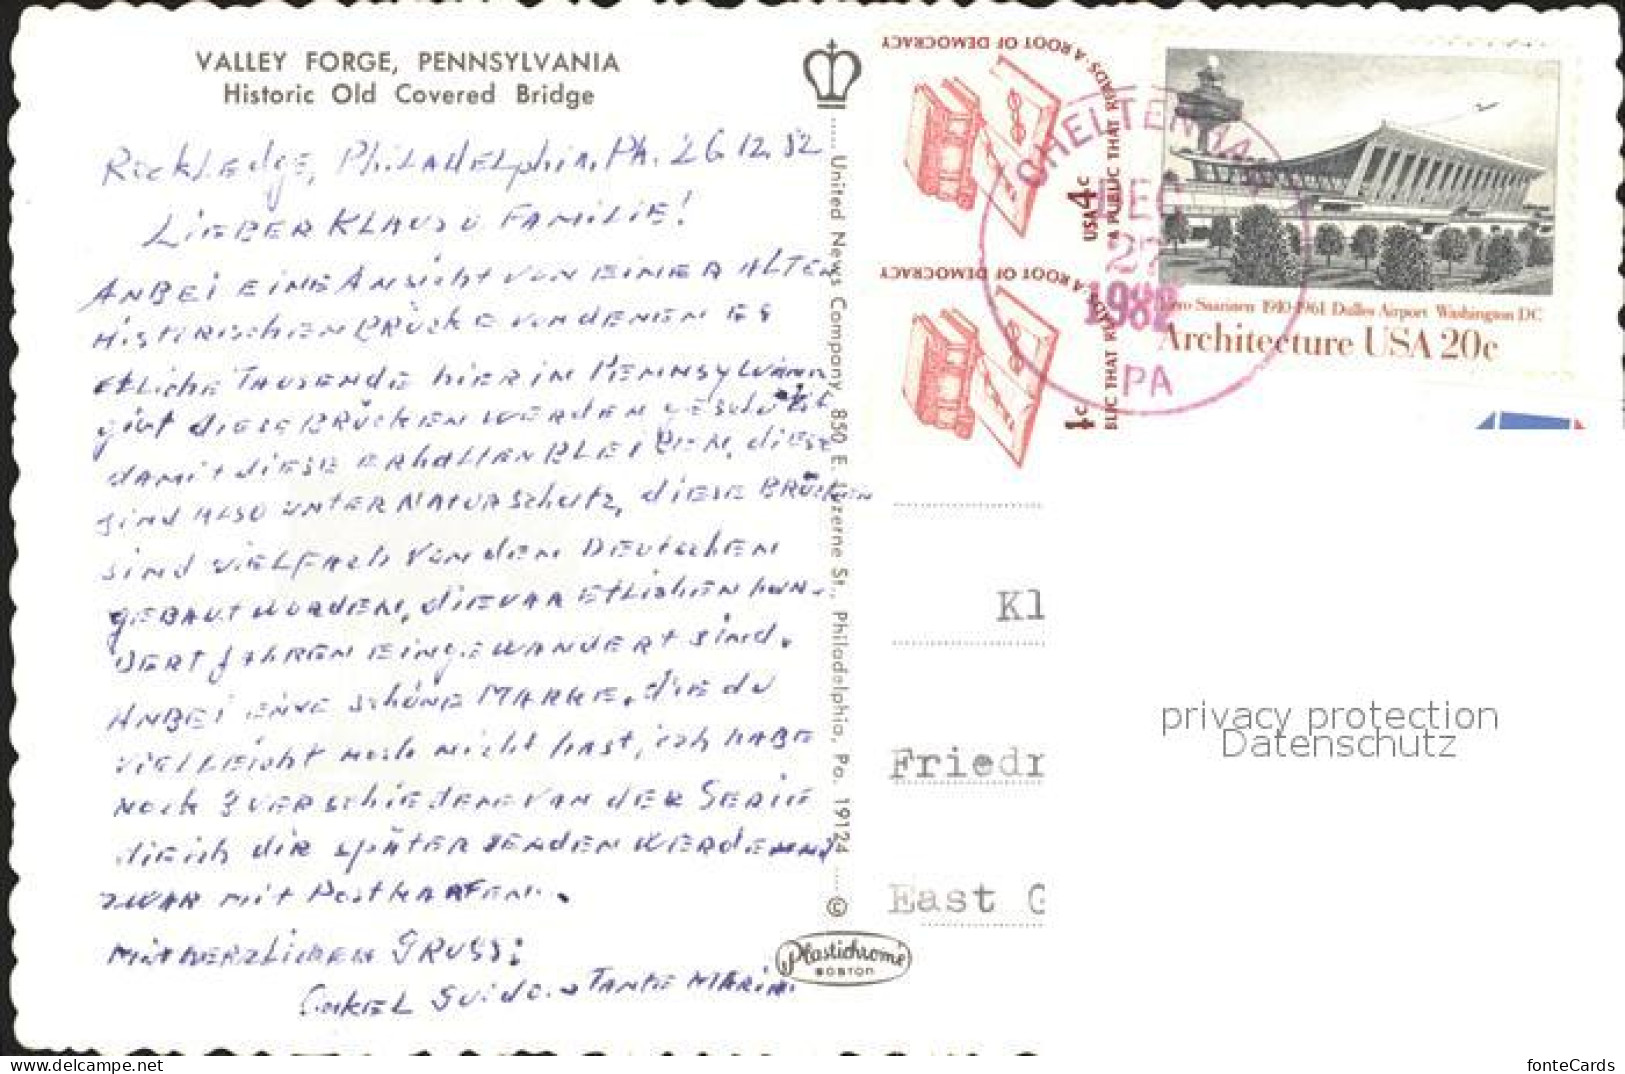 VALLEY FORGE, PENNSYLVANIA
Historic Old Covered Bridge
Rockledge, Philadelphia, PA. 26.12.82
LIEBER KLAUS U. FAMILIE!
ANBEI EINE Ansicht von EINER ALTEN
Historischen Brücke von denen es
etliche Tausende hier in Pennsylvania
gibt diese Brücken werden geschützt
damit diese erhalten bleiben, diese
sind also unter Naturschutz, diese Brücken
sind vielfach von den Deutschen
gebaut worden, die vor etlichen hun-
dert Jahren eingewandert sind.
Anbei eine schöne Marke, die du
vielleicht noch nicht hast, ich habe
noch 3 verschiedene von der Serie
die ich dir später senden werde und
zwar mit Postkarten.
Mit herzlichen Gruss:
Onkel Guido u Tante Maria
United News Company, 850 E. Luzerne St., Philadelphia, Pa. 19124
©
Plastichrome
BOSTON
A ROOT OF DEMOCRACY
A PUBLIC THAT READS
USA 4c
A ROOT OF DEMOCRACY
BLIC THAT READS
4c
CHELTENHAM
DEC
27
1982
PA
ero Saarinen 1910-1961 Dulles Airport Washington DC
Architecture USA 20c
Kl
Friedr
East G
privacy protection
Datenschutz
the-world-wide-collector.net
fonteCards